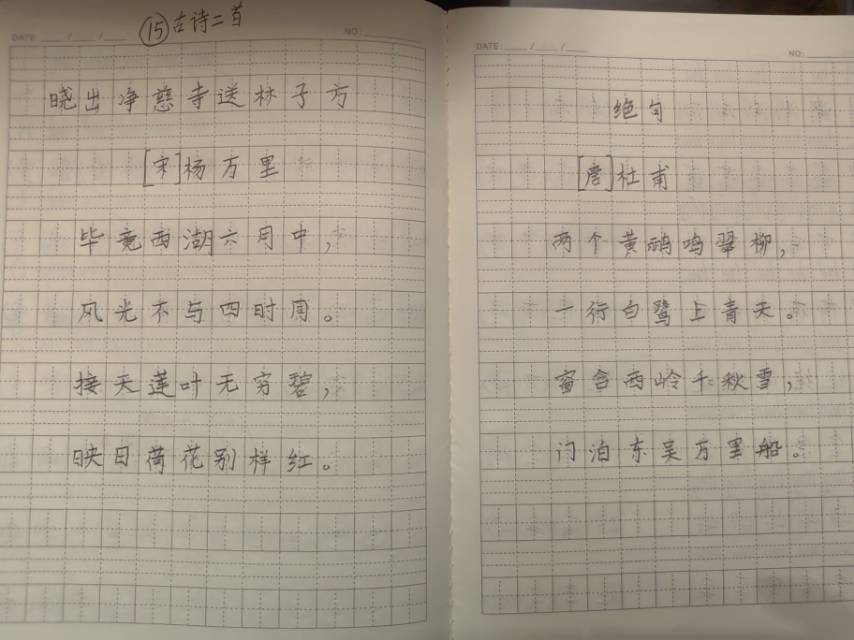 DATE: ___ / ___ / ___ ⑮古诗二首 NO:
晓出净慈寺送林子方
[宋]杨万里
毕竟西湖六月中，
风光不与四时同。
接天莲叶无穷碧，
映日荷花别样红。
DATE: ___ / ___ / ___ NO:
绝句
[唐]杜甫
两个黄鹂鸣翠柳，
一行白鹭上青天。
窗含西岭千秋雪，
门泊东吴万里船。